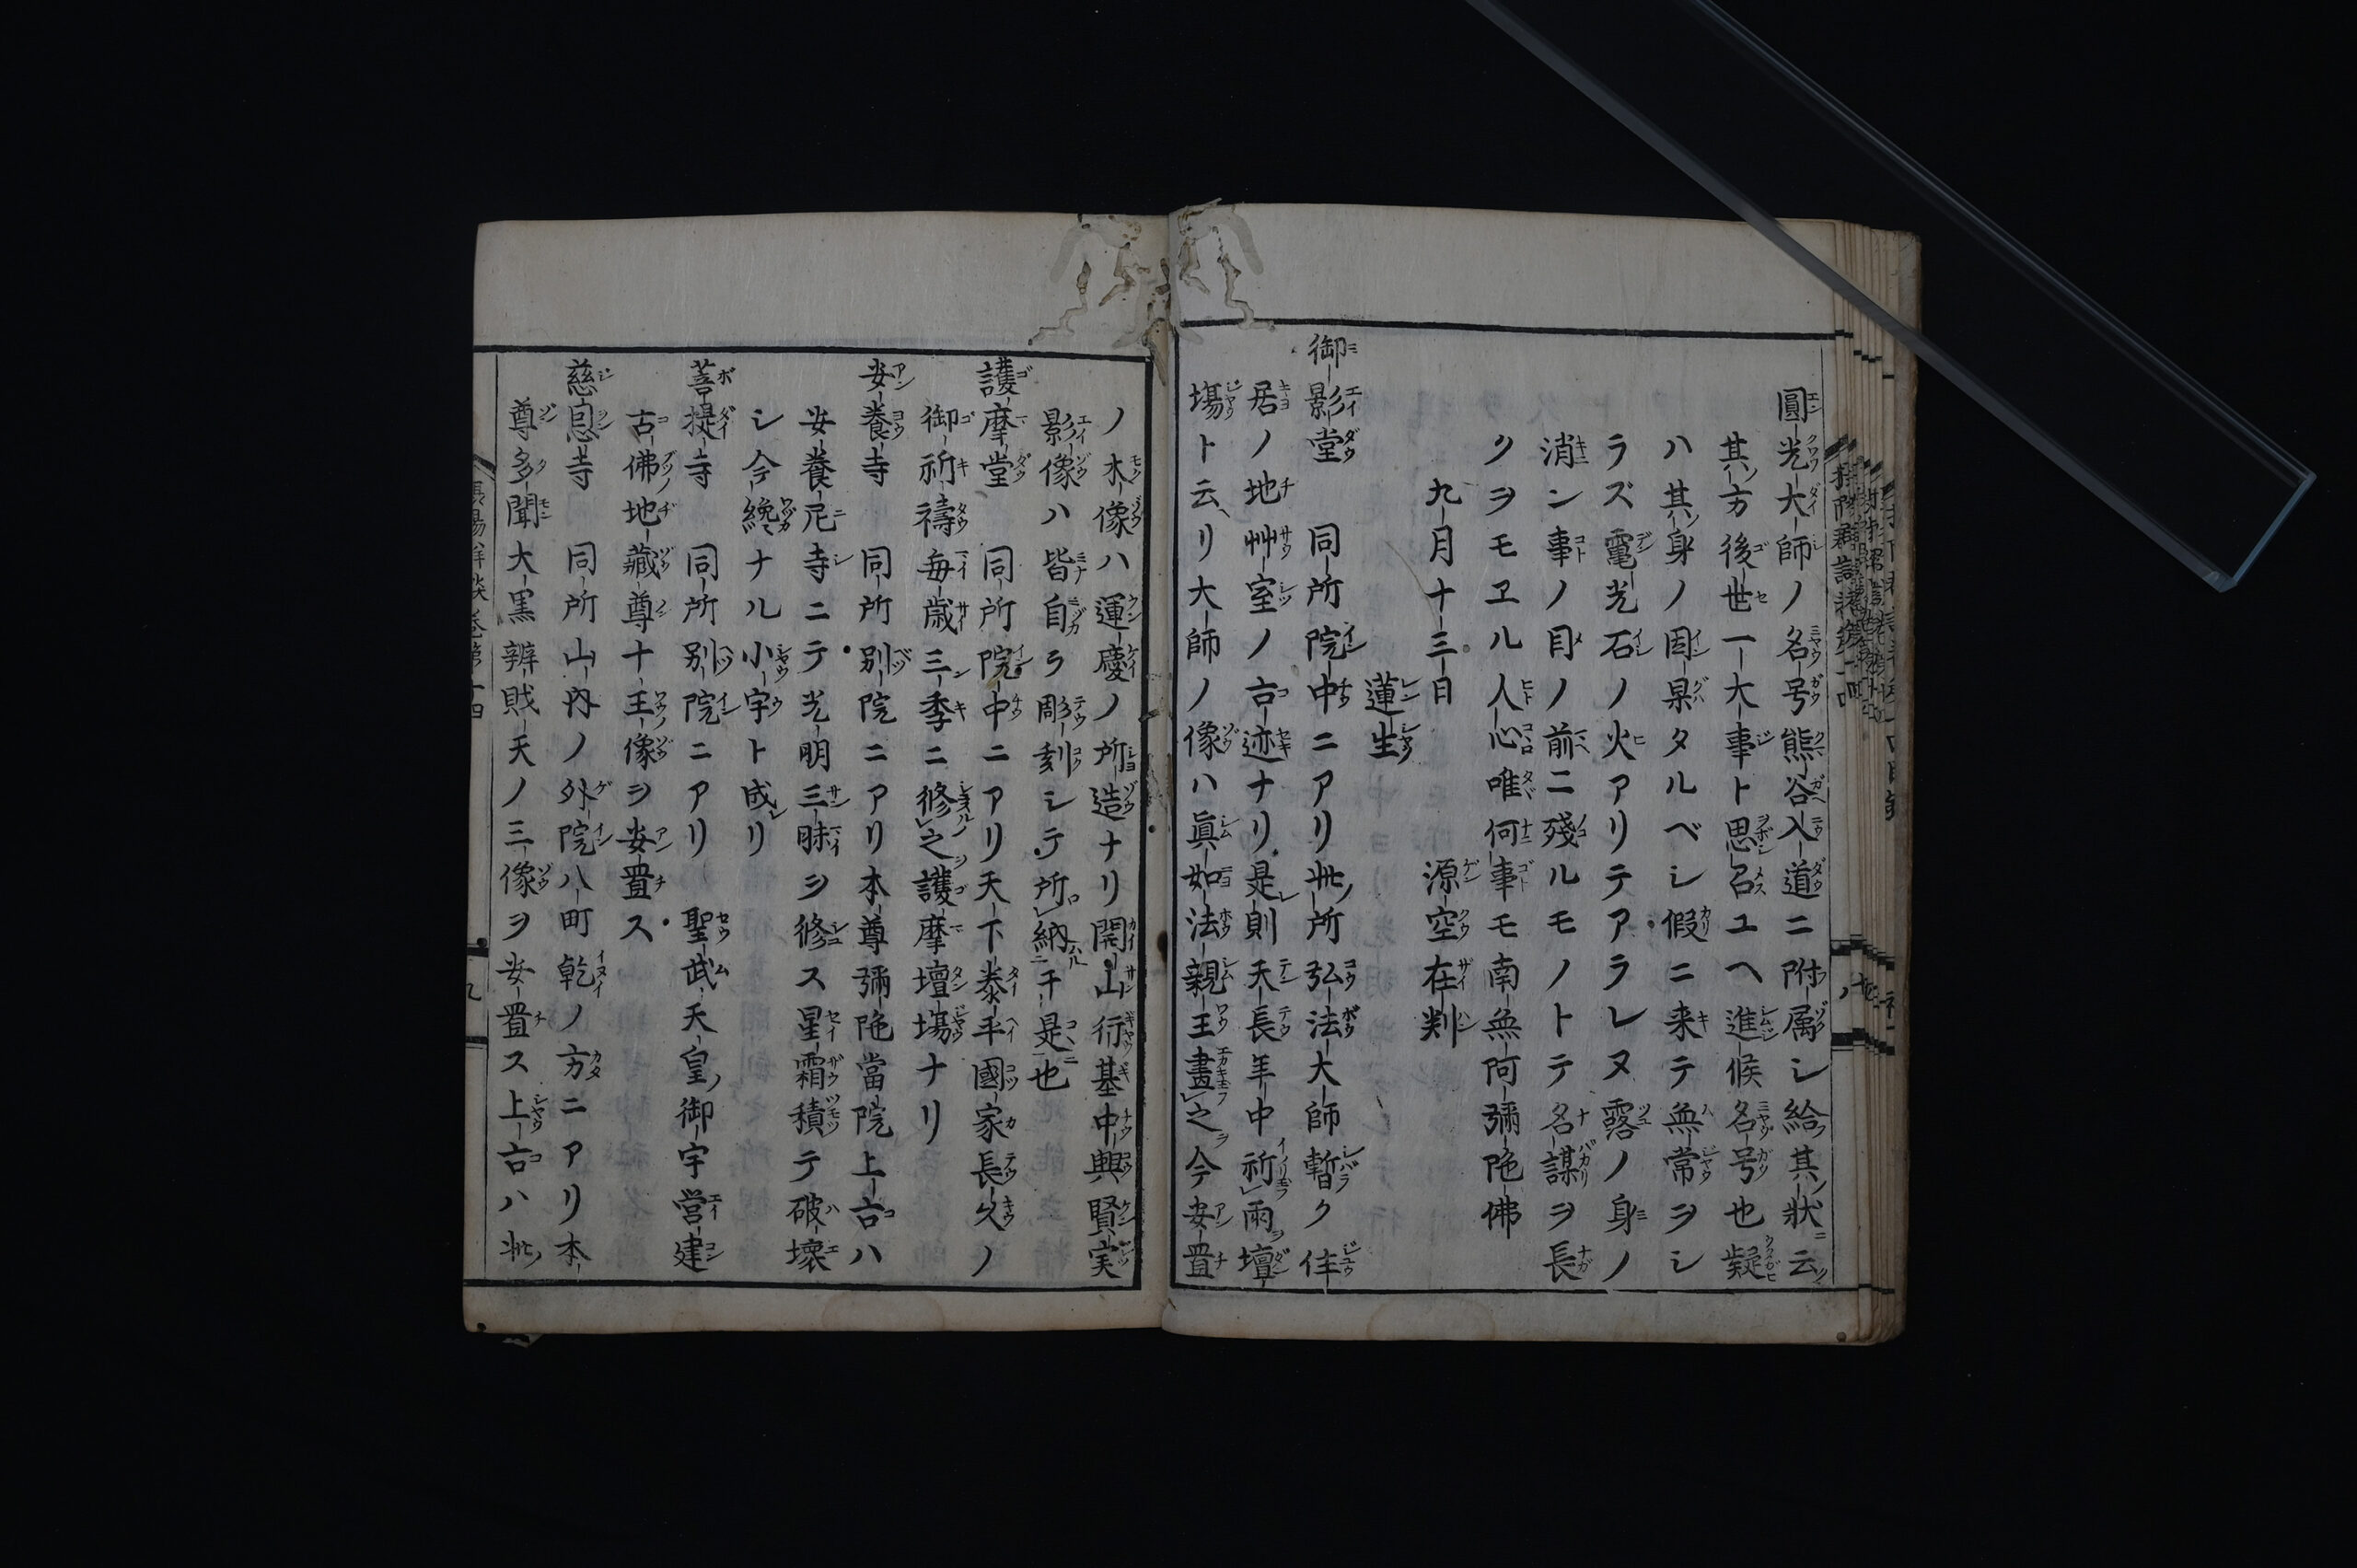 圓光大師ノ名号熊谷入道ニ附属シ給其状云
其方後世一大事ト思召ユヘ進候名号也疑
ハ其身ノ因果タルベシ假ニ来テ無常ヲシ
ラズ電光石ノ火アリテアラレヌ露ノ身ノ
消ン事ノ目ノ前ニ殘ルモノトテ名謀ヲ長
クヲモヱル人心唯何事モ南無阿彌陁佛
九月十三日 源空在判
蓮生
御影堂 同所院中ニアリ此所弘法大師暫ク住
居ノ地艸室ノ古迹ナリ是則天長年中祈雨壇
場ト云リ大師ノ像ハ眞如法親王畫之今安置
ノ木像ハ運慶ノ所造ナリ開山行基中興賢実
影像ハ皆自ラ彫刻シテ所納于是也
護摩堂 同所院中ニアリ天下泰平國家長久ノ
御祈禱毎歳三季ニ修之護摩壇場ナリ
安養寺 同所別院ニアリ本尊彌陁當院上古ハ
安養尼寺ニテ光明三昧ヲ修ス星霜積テ破壞
シ今纔ナル小宇ト成リ
菩提寺 同所別院ニアリ 聖武天皇御宇営建
古佛地藏尊十王像ヲ安置ス
慈恩寺 同所山内ノ外院八町乾ノ方ニアリ本
尊多聞大黒辨財天ノ三像ヲ安置ス上古ハ此